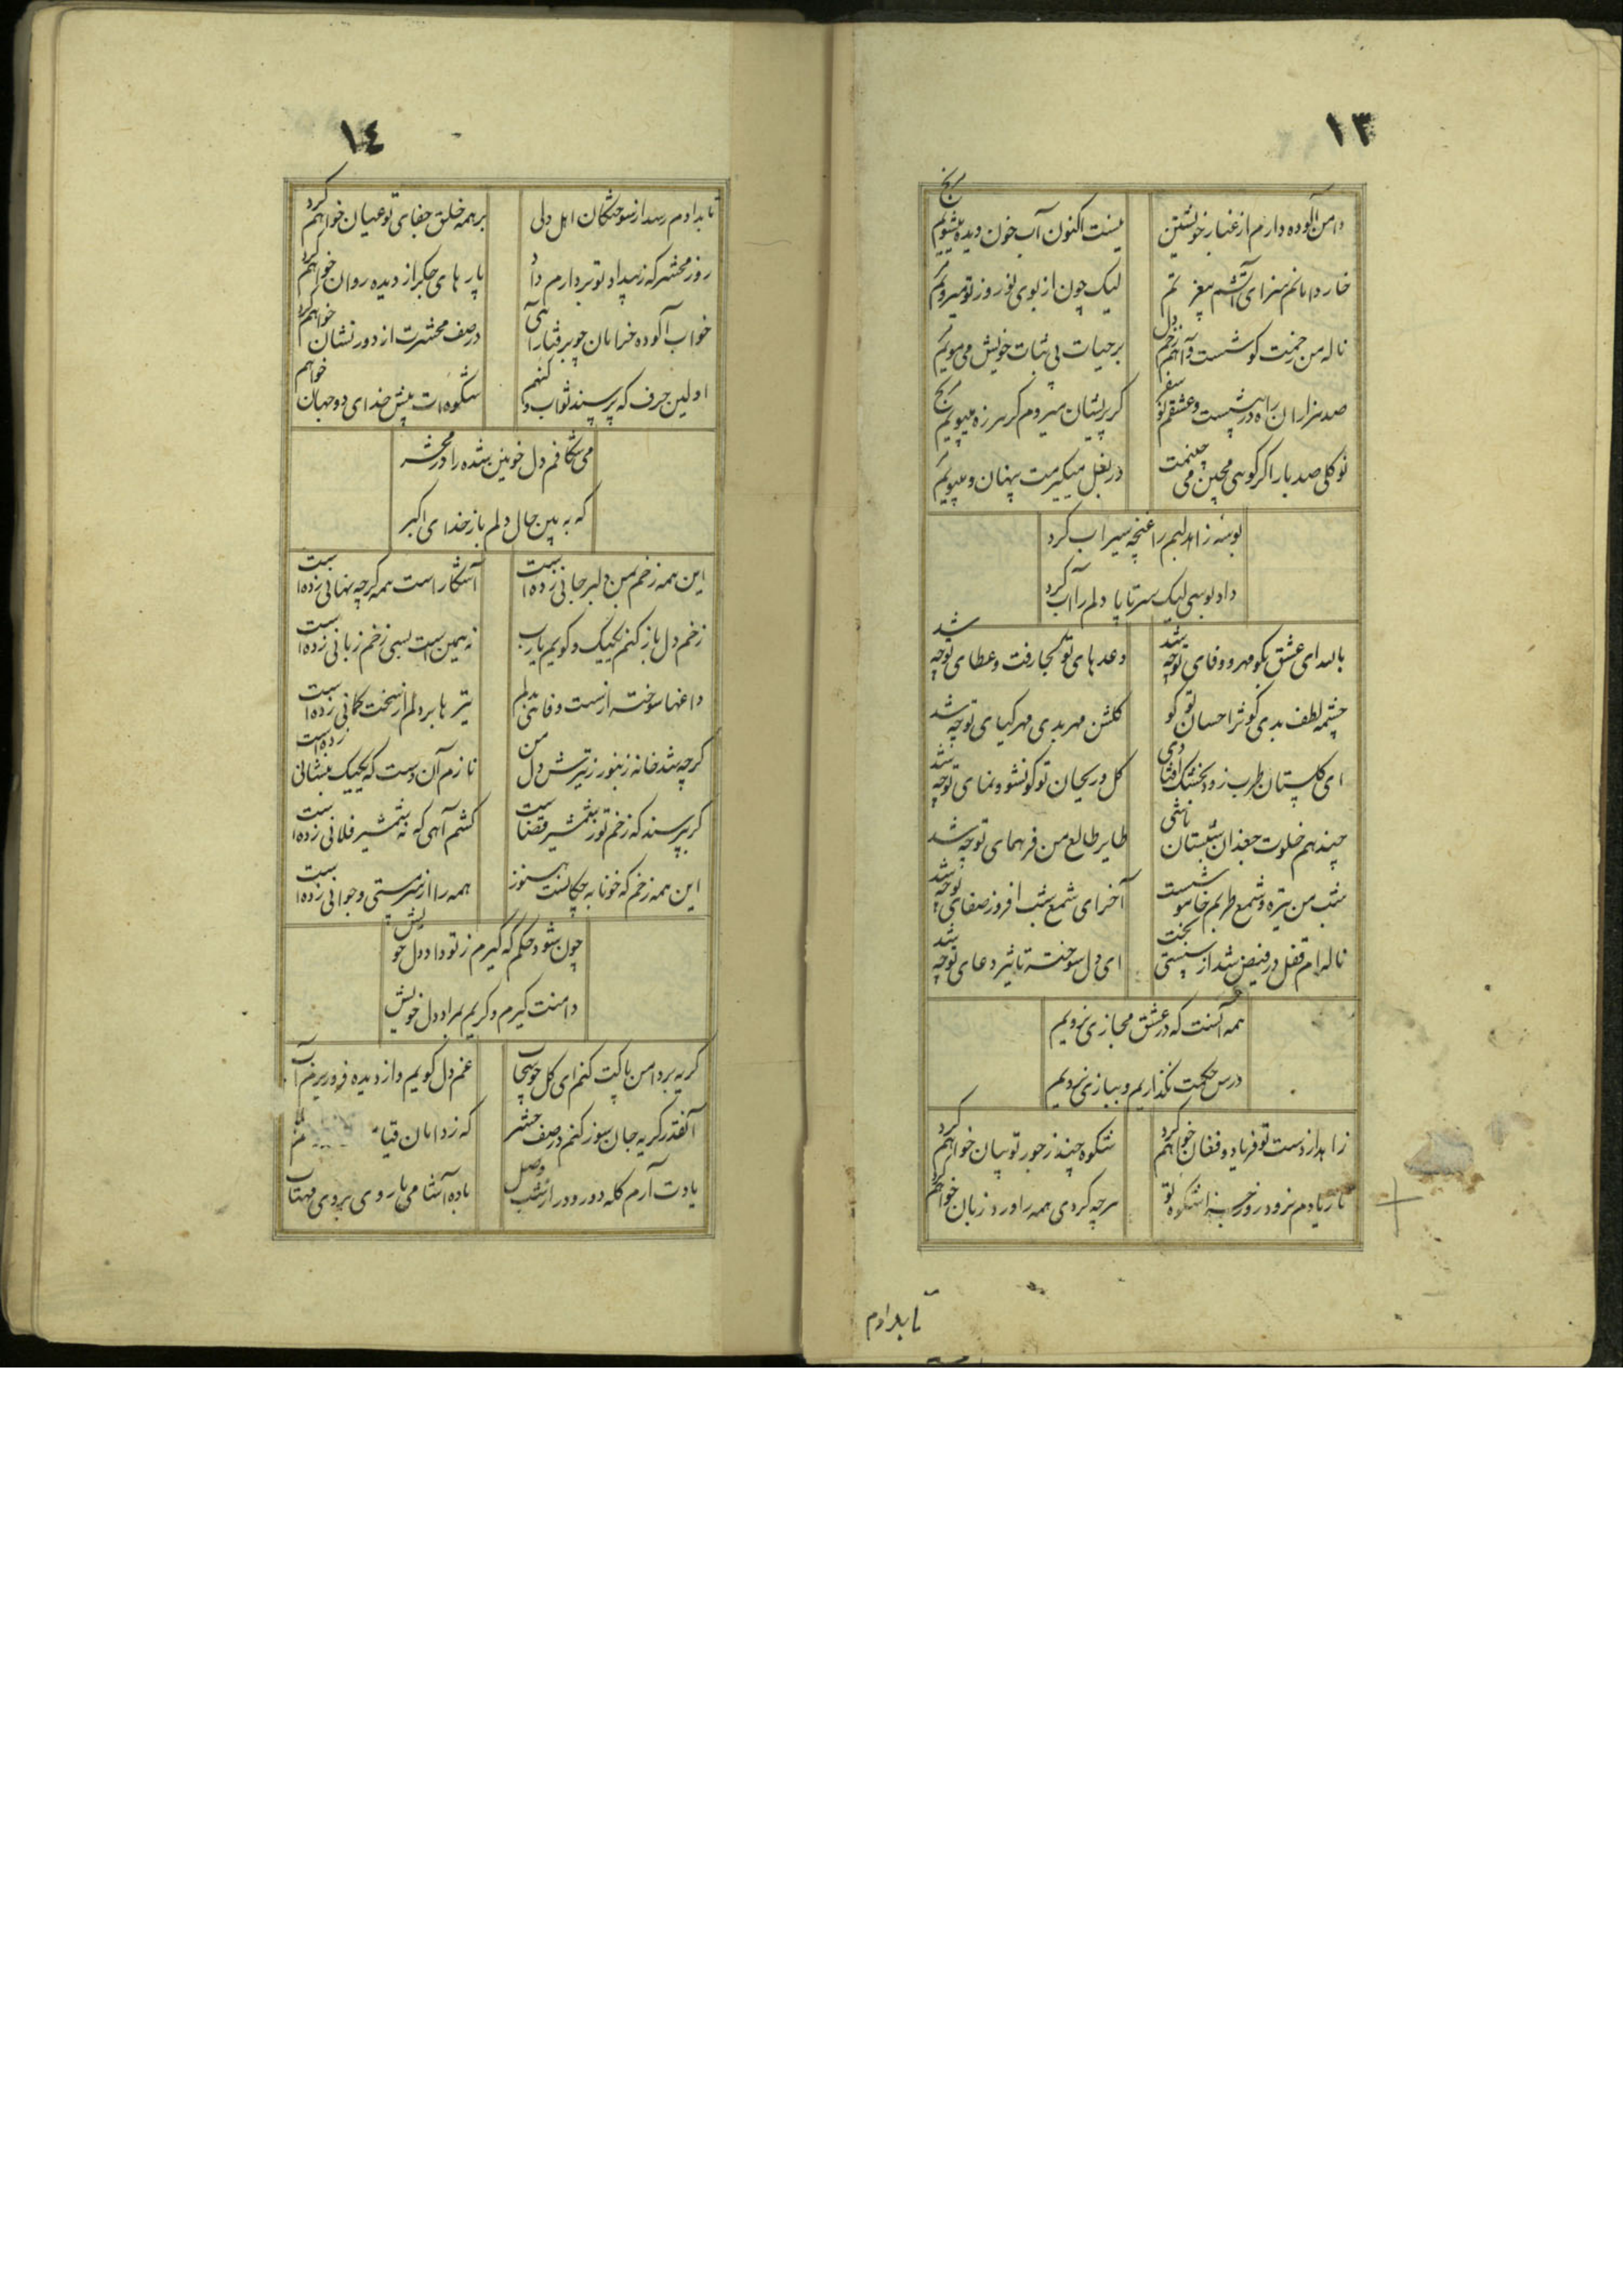 ١٣
دامن آلوده دارم از غبار خویشتن
نیست اکنون آب خون دیده میشویم
خار دامانم سزای آتشم
لیک چون از بوی نوروز تو میرویم
ناله من
بر حیات بی ثبات خویش می مویم
صد هزاران راه در پیست و عشقم
گر پریشان میروم گر هرزه میپویم
تو گلی صد بار اگر گویی مچین می چینمت
در بغل میگیرمت پنهان و میبویم
بوسه زاهد لبم را غنچه سیراب کرد
داد بوسی لیک سر تا پا دلم را آب کرد
ای عشق بگو مهر و وفای تو چه شد
وعدهای تو کجا رفت و عطای تو چه شد
چشمه لطف بدی کوثر احسان تو کو
گلشن مهر بدی مهر گیای تو چه شد
ای گلستان طرب زود بخشک افتادی
گل و ریحان تو کو نشو و نمای تو چه شد
چند هم خلوت جغدان شبستان باشی
طایر طالع من فر همای تو چه شد
شب من تیره و شمع طربم خاموشست
آخر ای شمع شب افروز صفای تو چه شد
ناله ام قفل در فیض شد از سستی بخت
ای دل سوخته تاثیر دعای تو چه شد
همه آنست که در عشق مجازی نرویم
درس حکمت نگذاریم و ببازی نرویم
زاهد از دست تو فریاد و فغان خواهم کرد
شکوه چند ز جور تو بیان خواهم کرد
تا ز یادم نرود روز شکوه تو
هر چه کردی همه را ورد زبان خواهم
تا بدادم
١٤
تا بدادم رسد از سوختگان اهل دلی
بر همه خلق جفای تو عیان خواهم کرد
روز محشر که ز بیداد تو بردارم داد
پار های جگر از دیده روان خواهم کرد
خواب آلوده خرامان چو برفتار آئی
در صف محشرت از دور نشان خواهم کرد
اولین حرف که پرسند ثواب و گنهم
شکوه ات پیش خدای دو جهان خواهم
می شکافم دل خونین شده را در محشر
که به بین حال دلم باز خدای اکبر
این همه زخم بمن دلبر جانی زده است
آشکار است همه گر چه نهانی زده است
زخم دل باز کنم یکیک و گویم یارب
نه همین است بسی زخم زبانی زده است
داغها سوخته از سست وفائی بدلم
تیر ها بر دلم از سخت کمانی زده است
گر چه شد خانه زنبور ز تیرش دل من
نازم آن دست که یکیک بنشانی زده است
گر بپرسند که زخم تو ز شمشیر قضاست
کشم آهی که نه شمشیر فلانی زده است
این همه زخم که خونابه چکانست هنوز
همه را از سر مستی و جوانی زده است
چون شود حکم که گیرم ز تو داد دل خویش
دامنت گیرم و گریم بمراد دل خویش
گریه بر دامن پاکت کنم ای گل
غم دل گویم و از دیده فرو ریزم آب
آنقدر گریه جان سوز کنم در صف حشر
که ز دامان
یادت آرم گله دور و دراز شب وصل
باده آشامی با روی بروی مهتاب